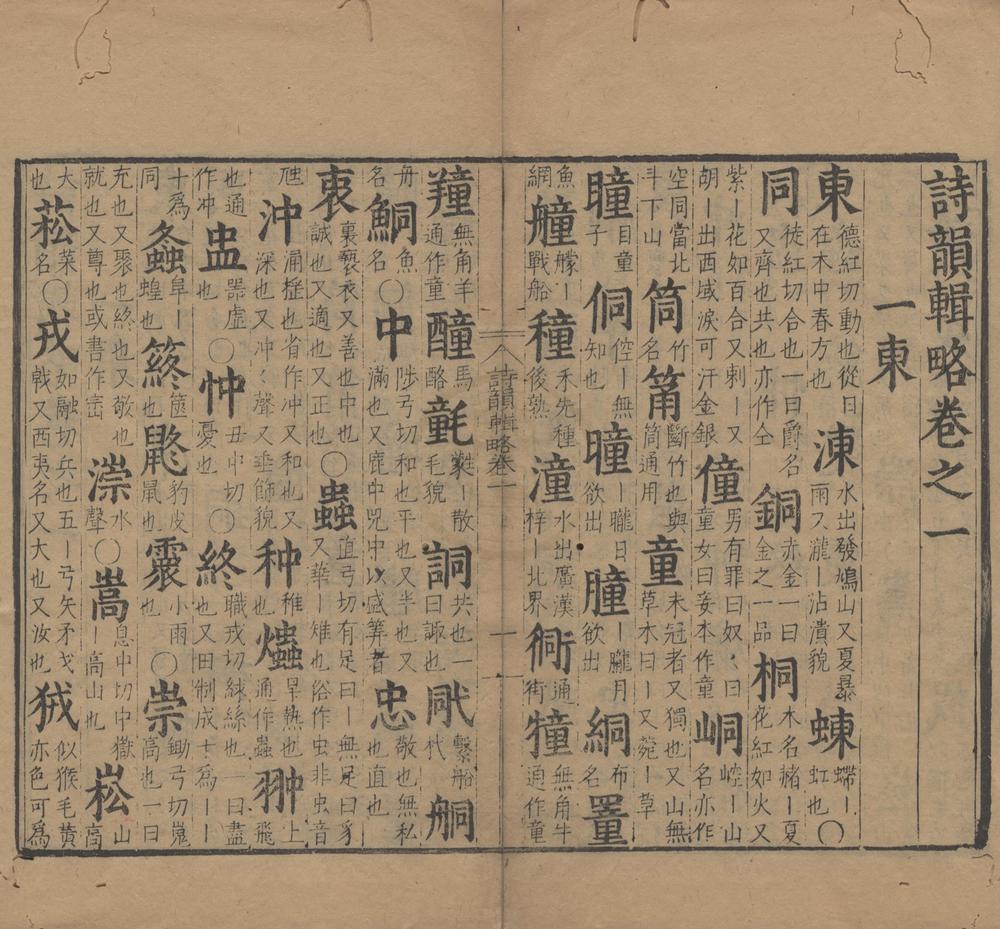 詩韻輯略卷之一
一東
東德紅切動也從日在木中春方也涷水出發鳩山又夏暴雨又瀧丨沾漬貌蝀螮丨虹也〇
同徒紅切合也一曰爵名又齊也共也亦作仝銅赤金一曰金之一品桐木名赭丨夏花紅如火又
紫丨花如百合又刺丨又胡丨出西域淚可汗金銀僮男有罪曰奴奴曰童女曰妾本作童峒崆丨山名亦作
空同當北斗下山筒竹名筩斷竹也與筒通用童未冠者又獨也又山無草木曰丨又菀丨草
瞳目童子侗倥丨無知也曈丨曨日欲出朣丨朧月欲出絧布名罿
魚網艟艨丨戰船穜禾先種後熟潼水出廣漢梓丨北界衕通街犝無角牛通作童
羵無角羊通作童
酮馬酪氃氋丨散毛貌詷共也一曰諏也戙繫船杙舸
舟名鮦魚名〇中陟弓切和也平也又半也又滿也又鹿中兕中以盛筭者忠敬也無私也直也
衷裏褻衣又善也中也誠也又適也又正也〇蟲直弓切有足曰丨無足曰豸又華丨雉也俗作虫非虫音
虺沖涌搖也省作冲又和也又深也又沖沖聲又垂飾貌种稚也爞旱熱也通作蟲翀上飛
也通作冲盅器虛也〇忡丑中切憂也〇終職戎切絿絲也一曰盡也又田制成十為丨丨
十為同螽阜丨蝗也𥵾篋也鼨豹皮鼠也霥小雨也〇崇鋤弓切嵬高也一曰
充也又聚也終也又敬也就也又尊也或書作崈漴水聲〇嵩息中切中嶽丨高山也崧山高
大也菘菜名〇戎如融切兵也五丨弓矢矛戈戟又西夷名又大也又汝也狨似猴毛黄亦色可為
詩韻輯略卷一
一